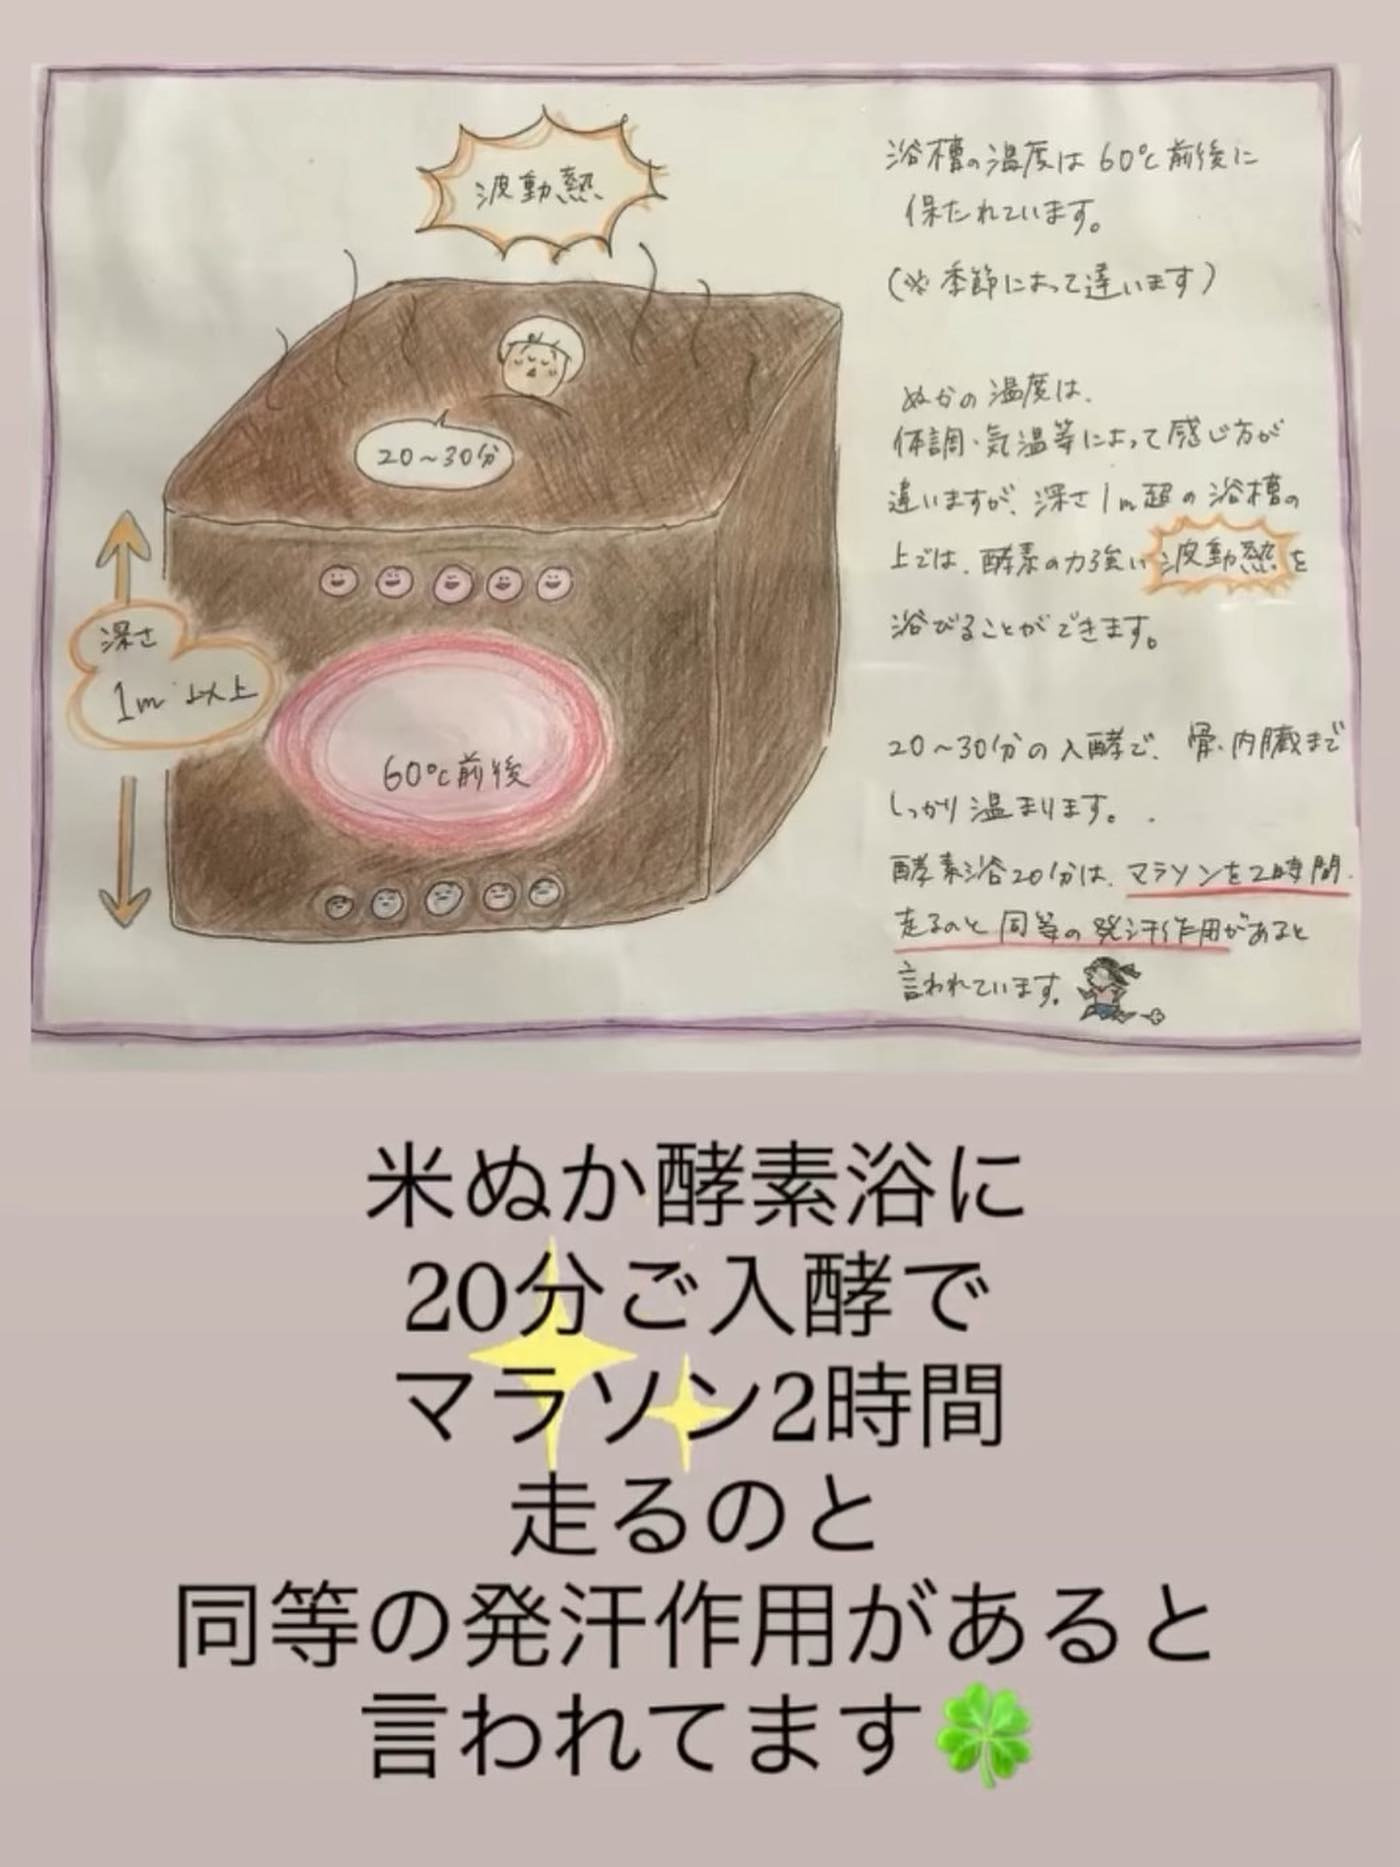 波動熱
20〜30分
深さ
1m以上
60℃前後
浴槽の温度は60℃前後に
保たれています。
(※季節によって違います)
ぬかの温度は、
体調・気温等によって感じ方が
違いますが、深さ1m超の浴槽の
上では、酵素の力強い波動熱を
浴びることができます。
20〜30分の入酵で、骨・内臓まで
しっかり温まります。
酵素浴20分は、マラソンを2時間
走るのと同等の発汗作用があると
言われています。
米ぬか酵素浴に
20分ご入酵で
マラソン2時間
走るのと
同等の発汗作用があると
言われてます🍀